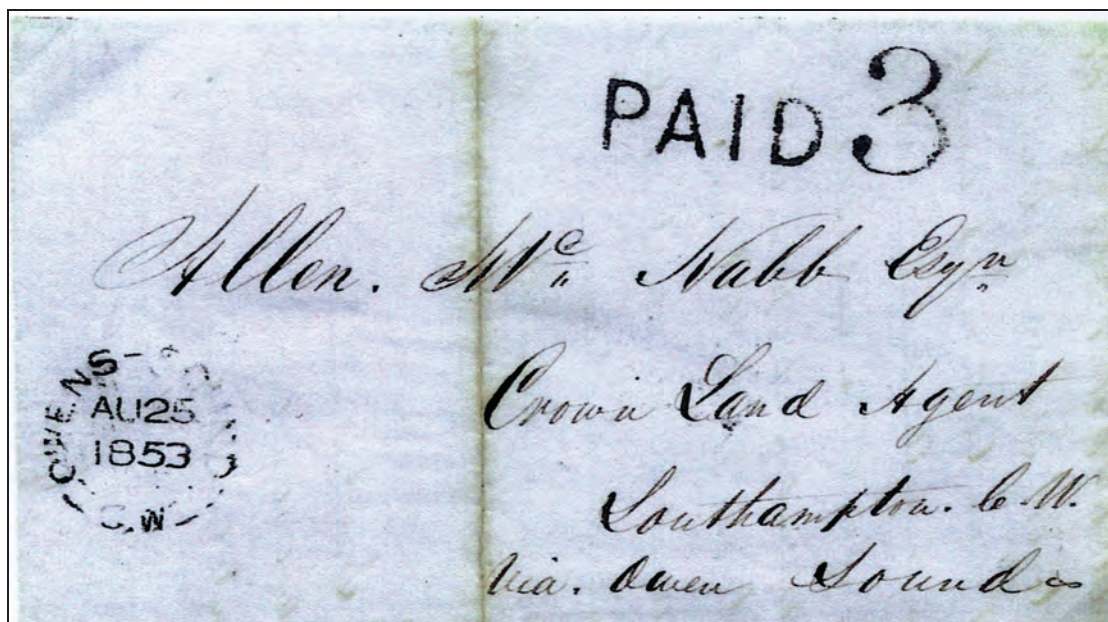 PAID 3
Allen. Mc Nabb Esqr
Crown Land Agent
Southampton. C. W.
Via. Owen Sound
OWENS
AU 25
1853
C.W